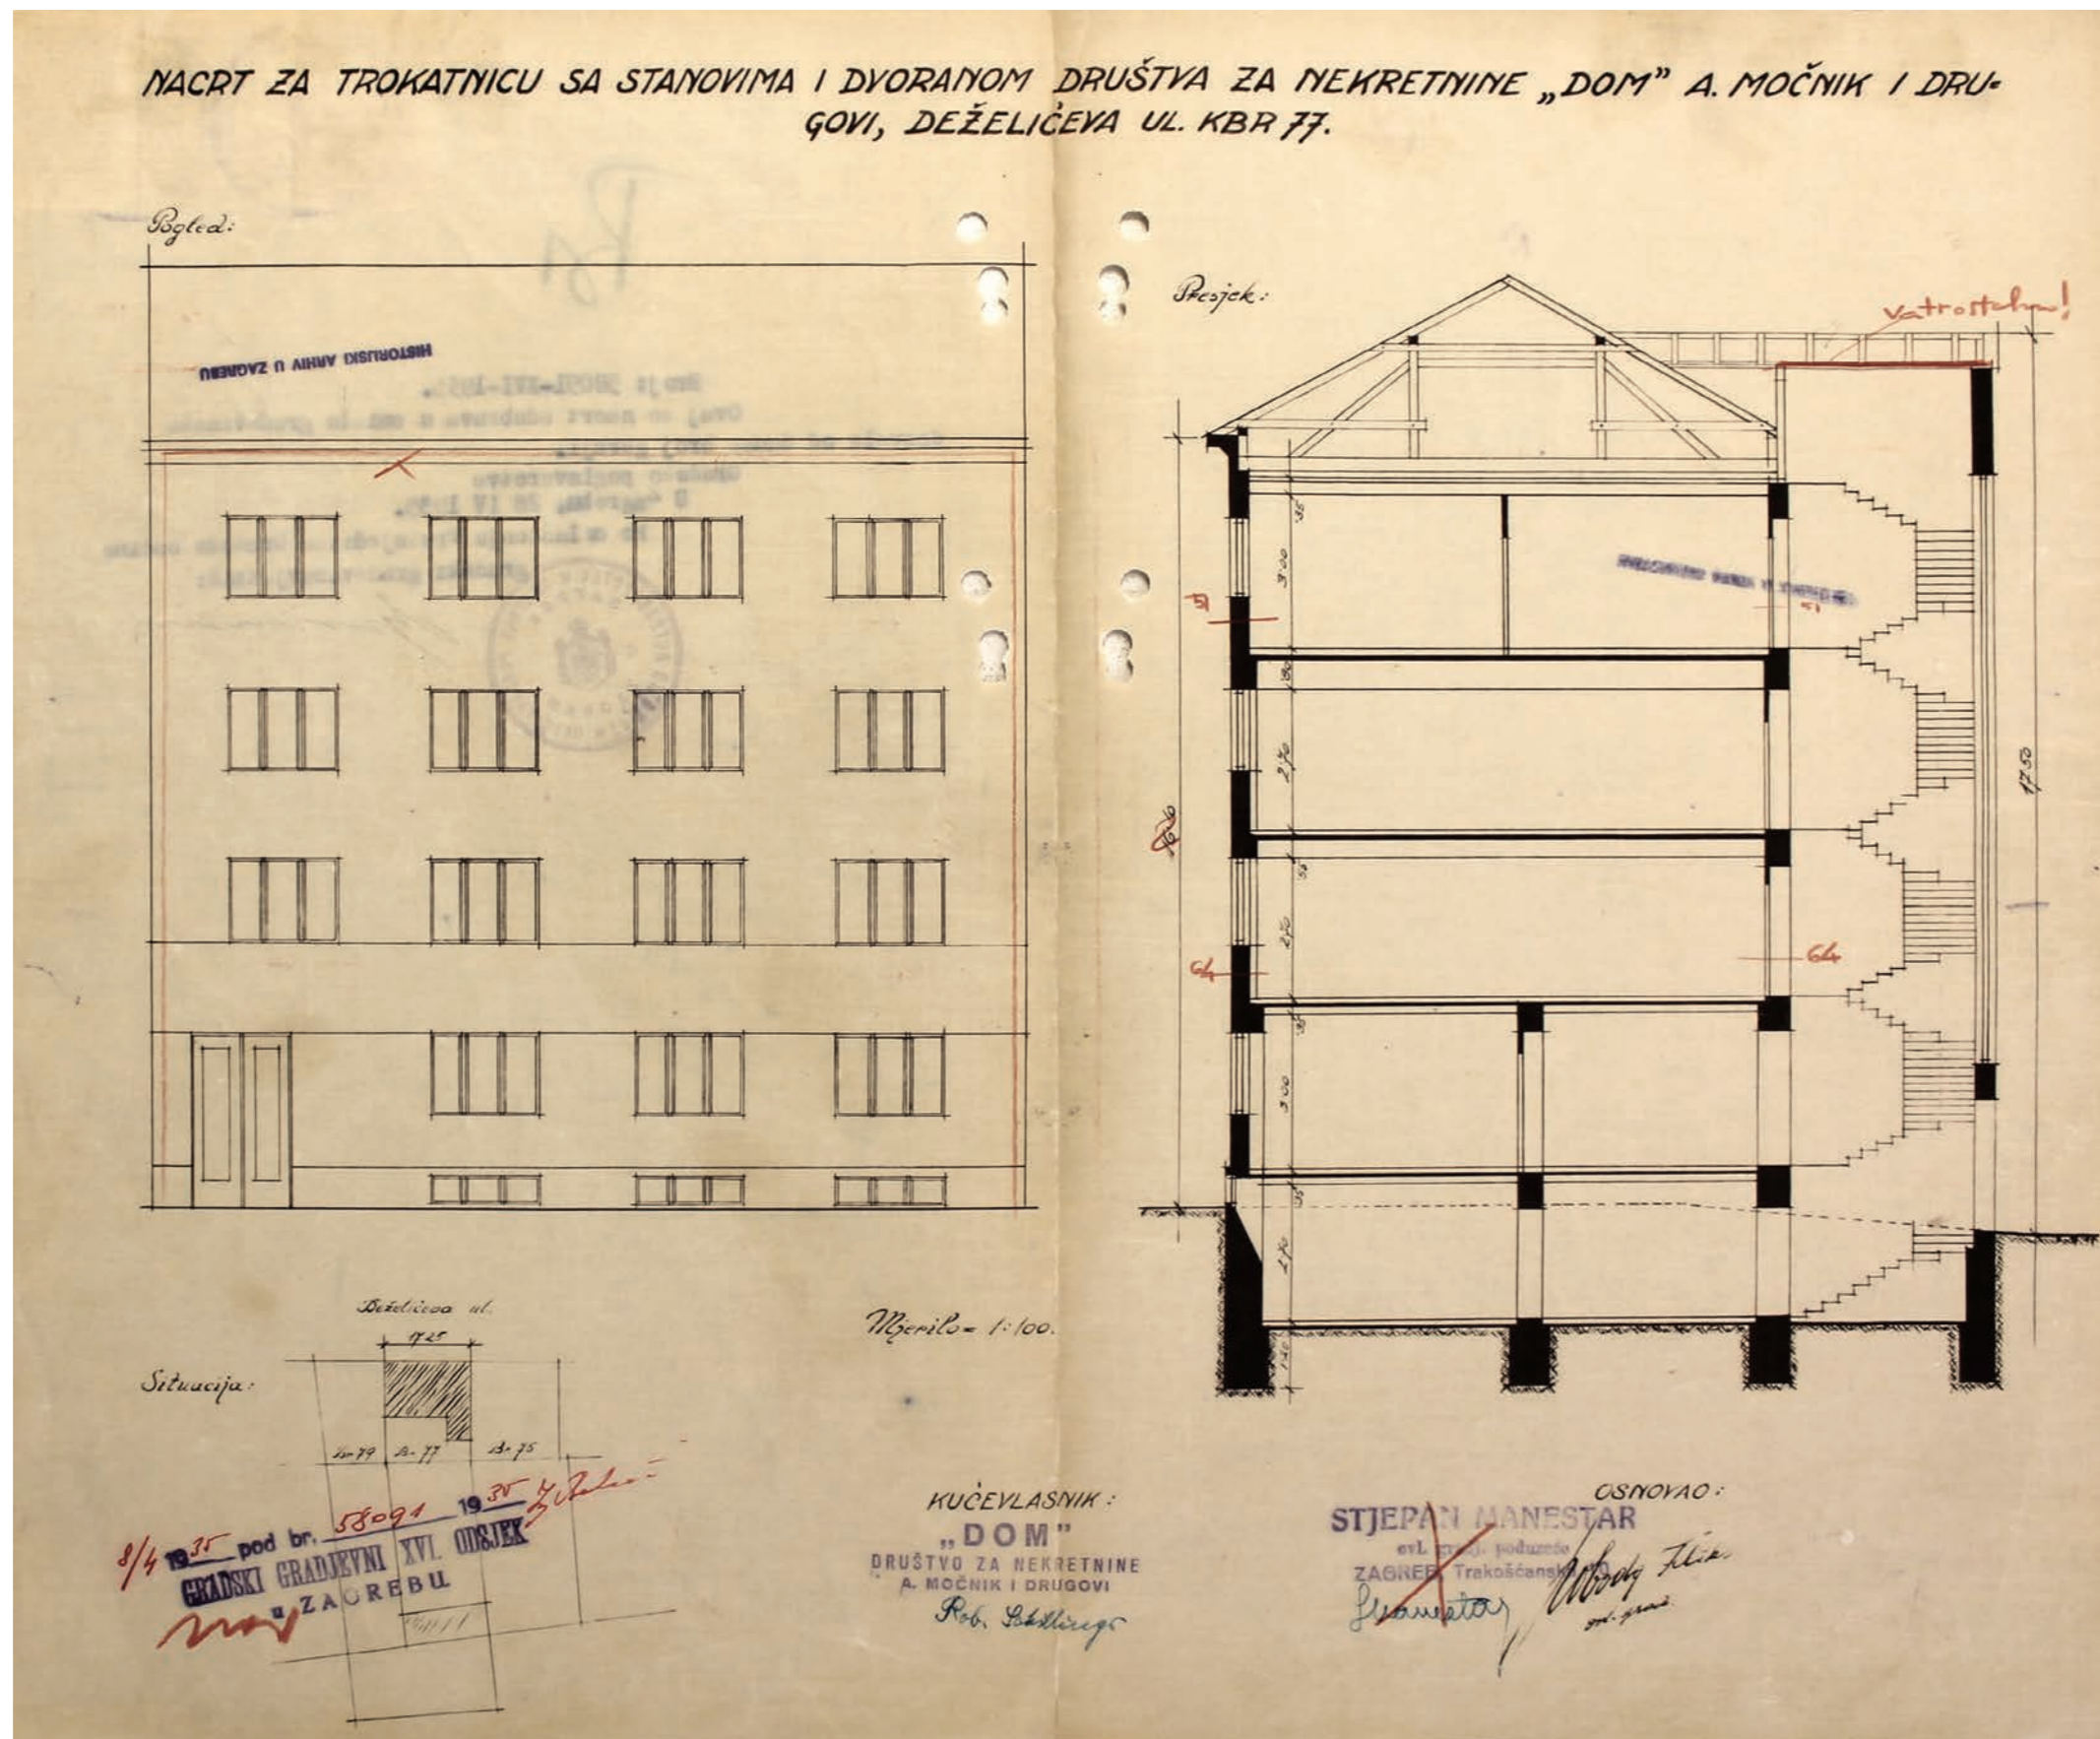 NACRT ZA TROKATNICU SA STANOVIMA I DVORANOM DRUŠTVA ZA NEKRETNINE „DOM” A. MOČNIK I DRU-
GOVI, DEŽELIĆEVA UL. KBR 77.
Pogled:
Presjek:
HISTORIJSKI ARHIV U ZAGREBU
35
3·00
51
51
80
2·70
17·50
55
2·70
64
64
35
3·00
35
2·70
Deželićeva ul.
17·25
Mjerilo = 1:100.
Situacija:
Br. 79 Br. 77 Br. 75
8/4 1935 pod br. 58091 1935
GRADSKI GRADJEVNI XVI. ODSJEK
u ZAGREBU
KUĆEVLASNIK:
„DOM”
DRUŠTVO ZA NEKRETNINE
A. MOČNIK I DRUGOVI
OSNOVAO:
STJEPAN MANESTAR
ovl. gradj. poduzeće
ZAGREB, Trakošćanska